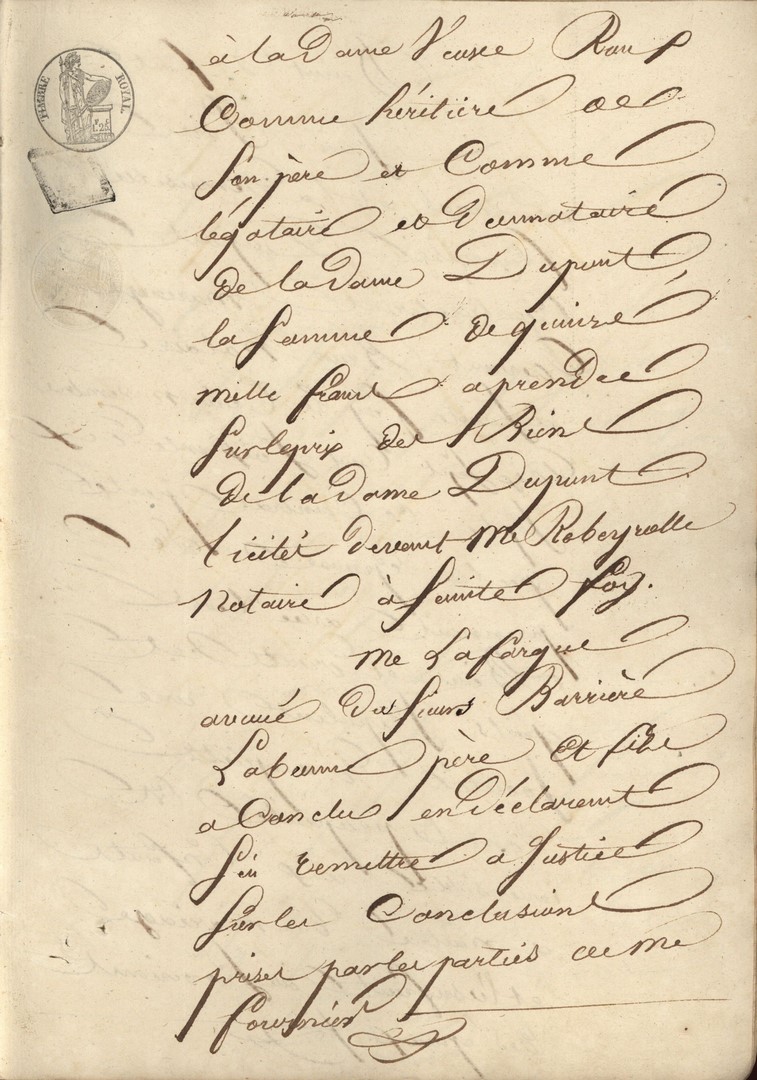 TIMBRE ROYAL
à la Dame Veuve Roux
Comme héritière de
son père et Comme
légataire et Donnataire
de la Dame Dupont
la somme de quinze
mille francs a prendre
sur le prix des Biens
de la Dame Dupont
licités devant Me Robeyrolle
Notaire à Sainte foy.
Me Lafargue
avoué des sieurs Barrière
Labaume père et fils
a Conclu en Déclarant
s'en remettre a Justice
sur les Conclusions
prises par les parties de me
fournier